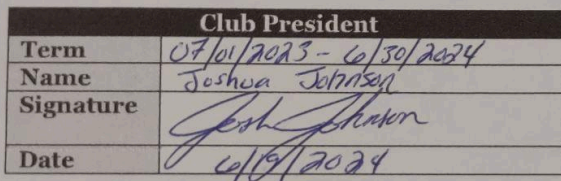 Club President
Term 07/01/2023 - 6/30/2024
Name Joshua Johnson
Signature Josh Johnson
Date 6/19/2024